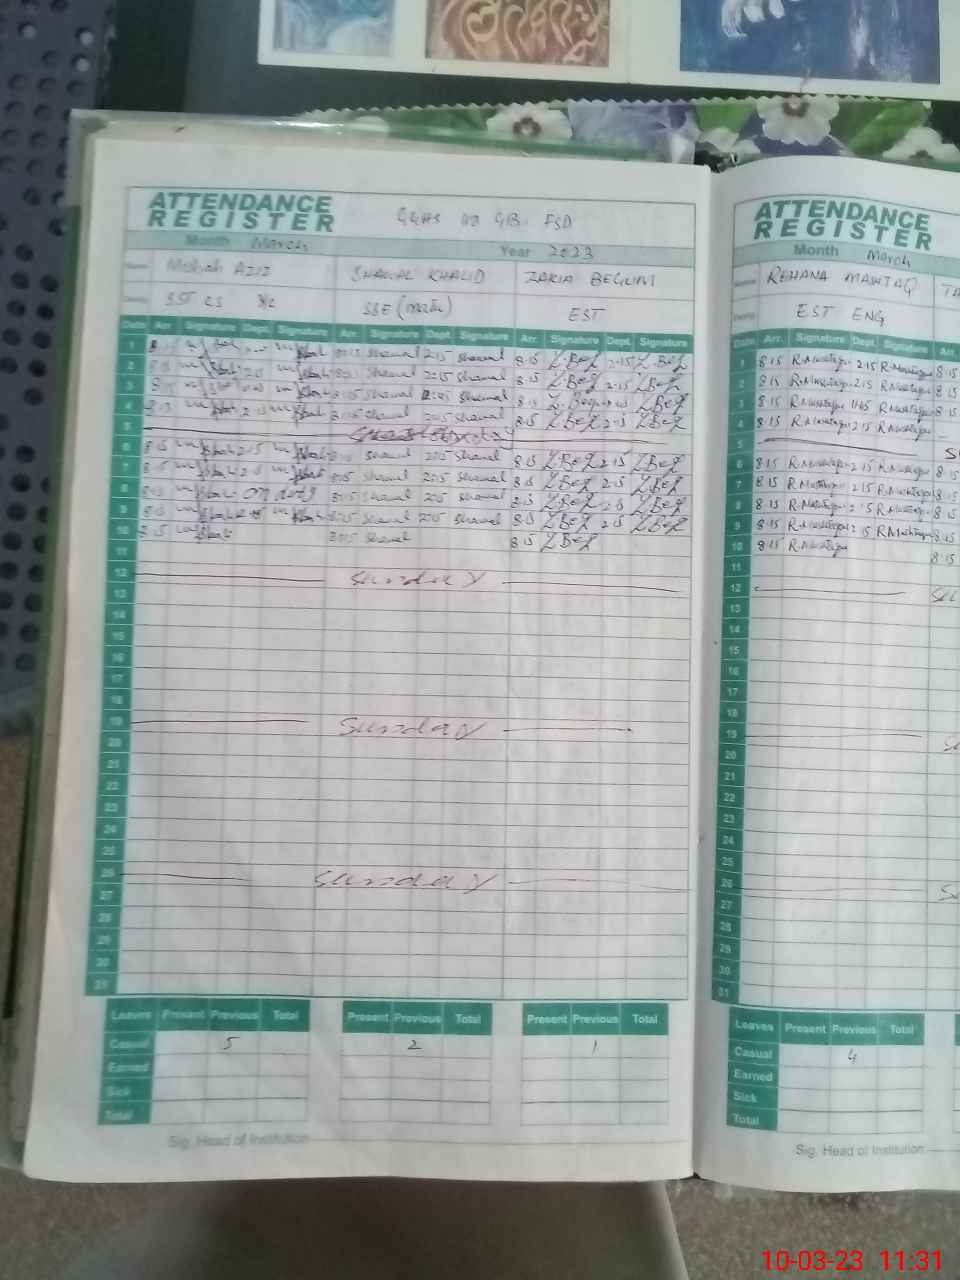 ATTENDANCE REGISTER
Month March Year 2023
AZIZ SHAWAL KHALID ZAKIA BEGUM
SST CS SSE (Math) EST
Date Arr. Signature Dept. Signature Arr. Signature Dept. Signature Arr. Signature Dept. Signature
1 8:15 Shawal 2:15 Shawal 8:15 Z.Beg 2:15 Z.Beg
2 Shawal 2:15 Shawal 8:15 Z.Beg 2:15 Z.Beg
3 8:15 Shawal Shawal 8:15 Z.Beg
4 8:15 2:15 8:15 Shawal 2:15 Shawal 8:15 Z.Beg 2:15 Z.Beg
5
6 8:15 2:15 8:15 Shawal 2:15 Shawal 8:15 Z.Beg 2:15 Z.Beg
7 8:15 2:15 8:15 Shawal 2:15 Shawal 8:15 Z.Beg 2:15 Z.Beg
8 8:15 on duty 8:15 Shawal 2:15 Shawal 8:15 Z.Beg 2:15 Z.Beg
9 8:15 8:15 Shawal 2:15 Shawal 8:15 Z.Beg 2:15 Z.Beg
10 8:15 8:15 Shawal 8:15 Z.Beg
11
12 Sunday
13
14
15
16
17
18
19 Sunday
20
21
22
23
24
25
26 Sunday
27
28
29
30
31
Leaves Present Previous Total Present Previous Total Present Previous Total
Casual 5 2 1
Earned
Sick
Total
Sig. Head of Institution
ATTENDANCE REGISTER
Month March
REHANA MASHTAQ
EST ENG
Date Arr. Signature Dept. Signature Arr.
1 8:15 R.Mushtaque 2:15 R.Mushtaque 8:15
2 8:15 R.Mushtaque 2:15 R.Mushtaque 8:15
3 8:15 R.Mushtaque R.Mushtaque 8:15
4 8:15 R.Mushtaque 2:15 R.Mushtaque
5
6 8:15 R.Mushtaque 2:15 R.Mushtaque
7 8:15 R.Mushtaque 2:15 R.Mushtaque 8:15
8 8:15 R.Mushtaque 2:15 R.Mushtaque 8:15
9 8:15 R.Mushtaque 2:15 R.Mushtaque 8:15
10 8:15 R.Mushtaque 8:15
11
12
13
14
15
16
17
18
19
20
21
22
23
24
25
26
27
28
29
30
31
Leaves Present Previous Total
Casual 4
Earned
Sick
Total
Sig. Head of Institution
10-03-23 11:31